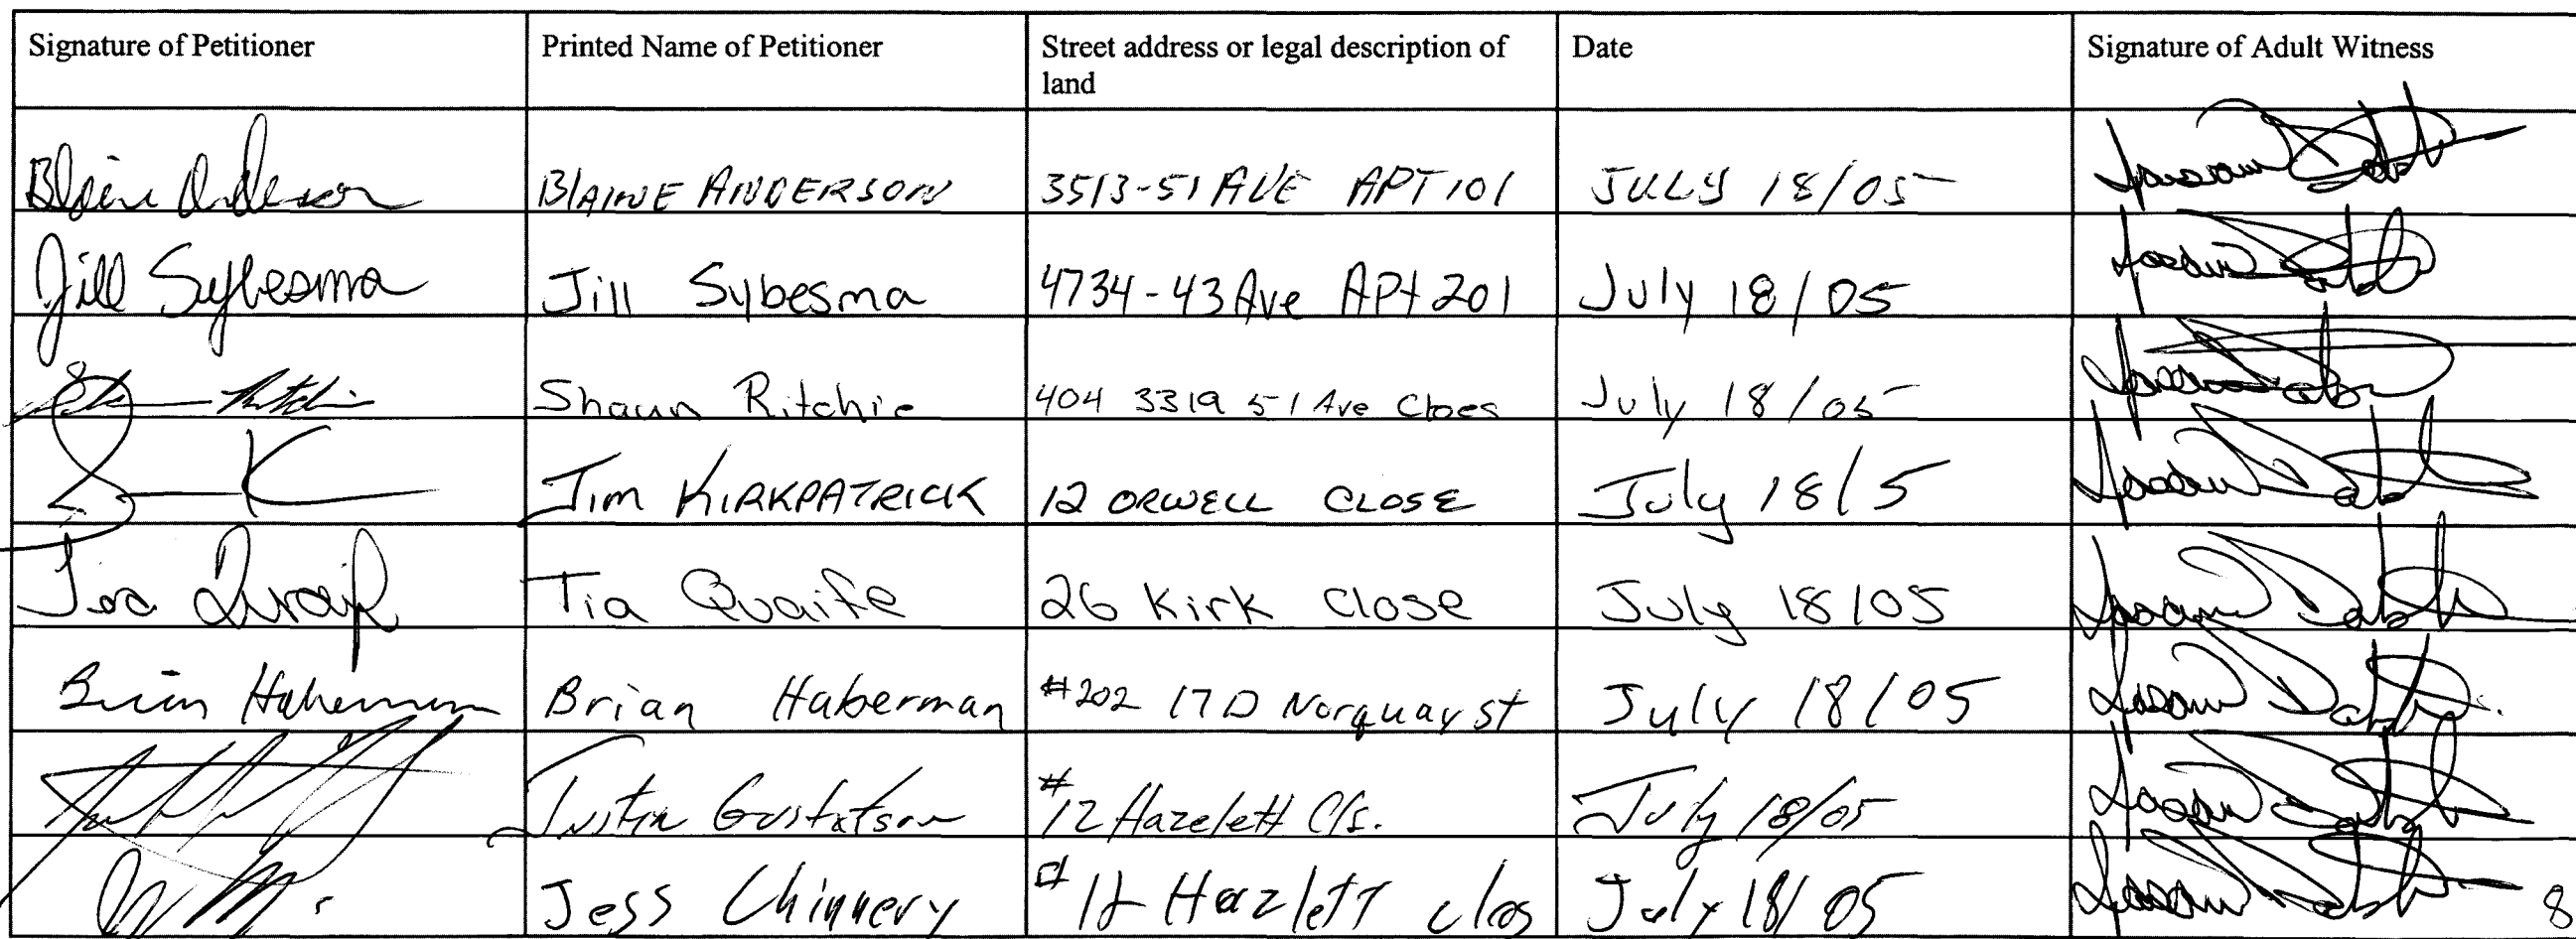 Signature of Petitioner Printed Name of Petitioner Street address or legal description of land Date Signature of Adult Witness
Blaine Anderson BLAINE ANDERSON 3513-51 AVE APT 101 JULY 18/05
Jill Sybesma Jill Sybesma 4734-43 Ave APt 201 July 18/05
Shaun Ritchie 404 3319 51 Ave Cloes July 18/05
Jim KIRKPATRICK 12 ORWELL CLOSE July 18/5
Tia Quaife Tia Quaife 26 Kirk Close July 18/05
Brian Haberman Brian Haberman #202 17D Norquay st July 18/05
Justin Gustafson #12 Hazelett Cls. July 18/05
Jess Chinnery #12 Hazlett clos July 18/05
8